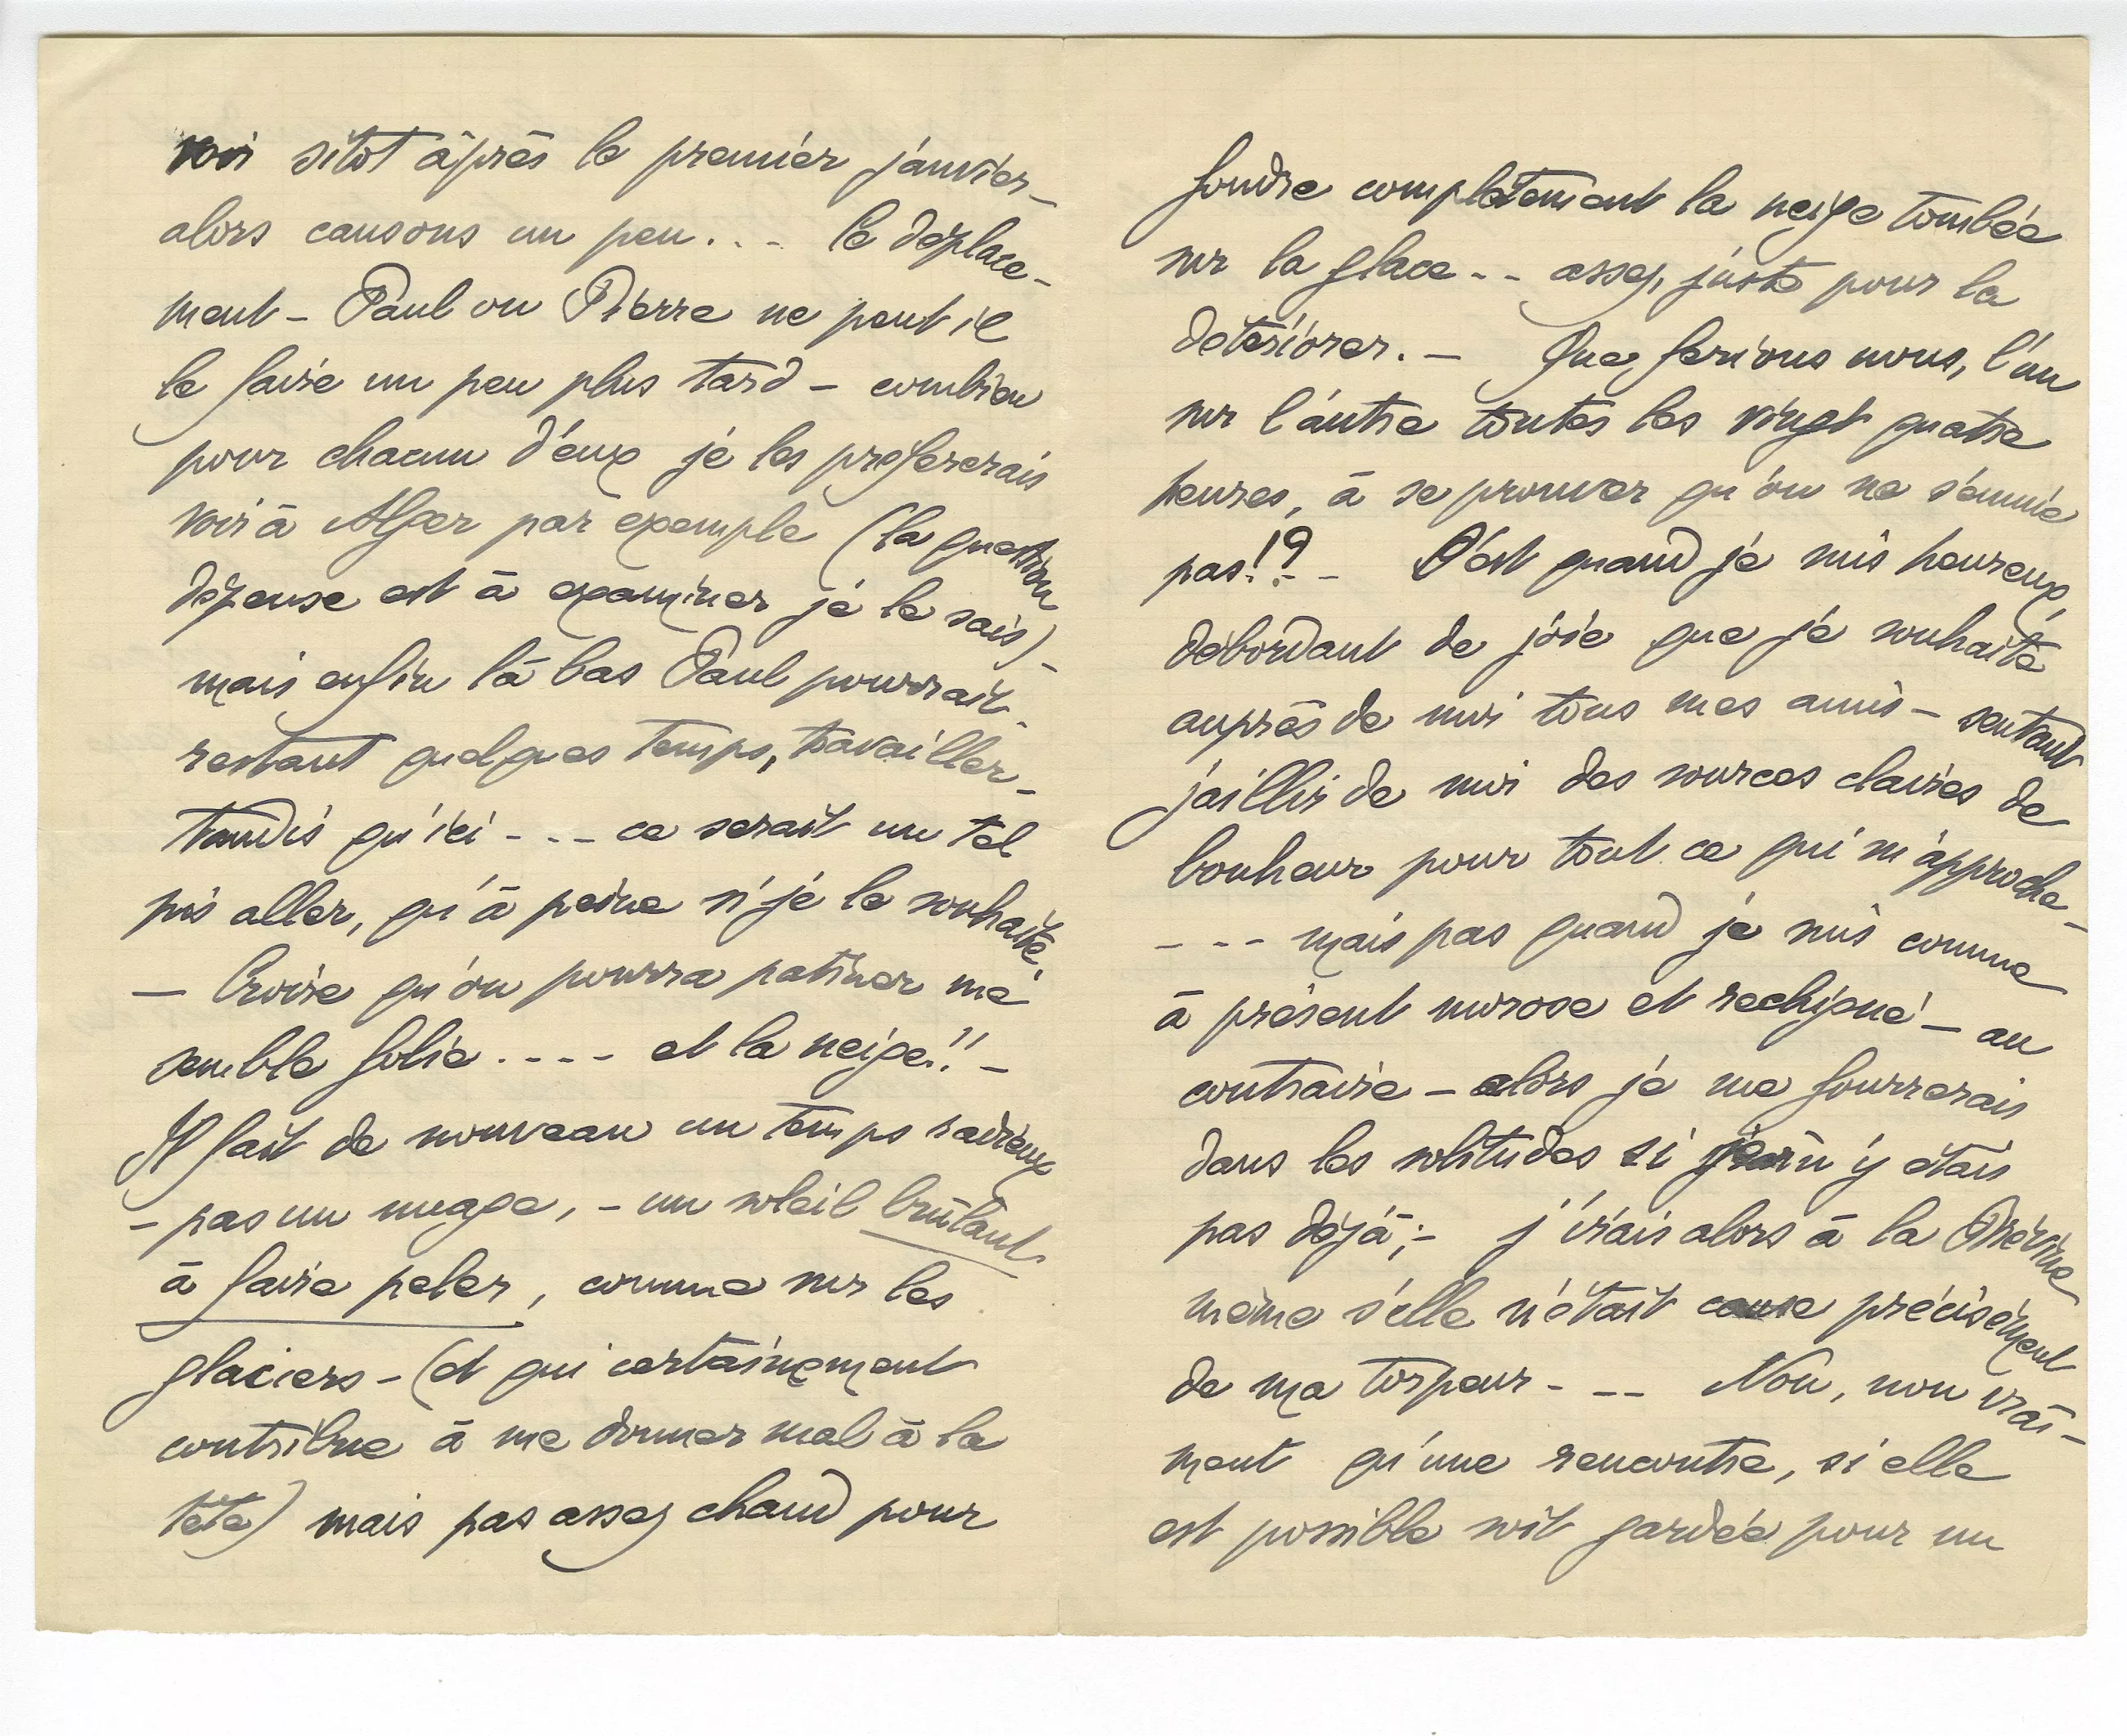 voir sitôt après le premier janvier –
alors causons un peu... – le déplace-
ment – Paul ou Pierre ne peut il
le faire un peu plus tard – combien
pour chacun d'eux je les prefererais
voir à Alger par exemple (la question
dépense est à examiner je le sais) –
mais enfin là bas Paul pourrait –
restant quelques temps, travailler –
tandis qu'ici - - - ce serait un tel
pis aller, qu'à peine si je le souhaite.
– Croire qu'on pourra patiner me
semble folie . - - - et la neige!! –
Il fait de nouveau un temps radieux
– pas un nuage, – un soleil brûlant
à faire peler, comme sur les
glaciers – (et qui certainement
contribue à me donner mal à la
tête) mais pas assez chaud pour
fondre complètement la neige tombée
sur la glace - - assez, juste pour la
détériorer. – Que ferions nous, l'un
sur l'autre toutes les vingt quatre
heures, à se prouver qu'on ne s'ennuie
pas!? - - C'est quand je suis heureux,
débordant de joie que je souhaite
auprès de moi tous mes amis – sentant
jaillir de moi des sources claires de
bonheur pour tout ce qui m'approche –
- - - mais pas quand je suis comme
à présent morose et rechigné – au
contraire – alors je me fourrerais
dans les solitudes si je n'y étais
pas déjà; – j'irais alors à la Brévine
même s'elle n'était cause précisément
de ma torpeur - - - Non, non vrai-
ment qu'une rencontre, si elle
est possible soit gardée pour un